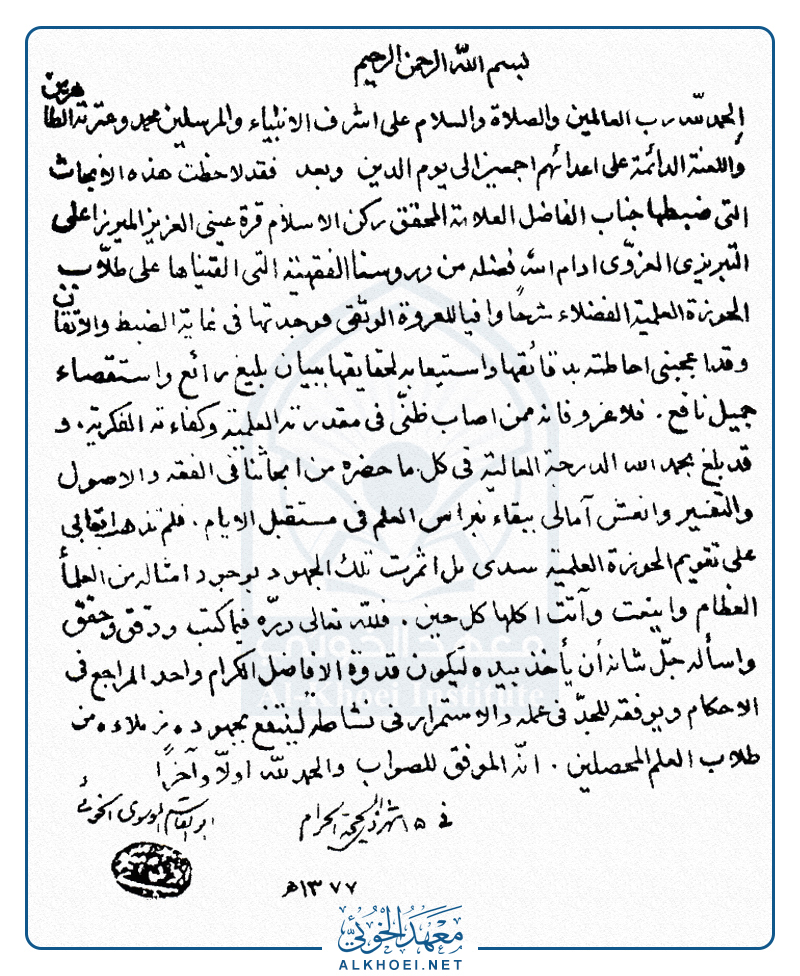 بسم الله الرحمن الرحيم
الحمد لله رب العالمين والصلاة والسلام على اشرف الانبياء والمرسلين محمد وعترته الطاهرين
واللعنة الدائمة على اعدائهم اجمعين الى يوم الدين وبعد فقد لاحظت هذه الابحاث
التي ضبطها جناب الفاضل العلامة المحقق ركن الاسلام قرة عيني العزيز الميرزا على
التبريزي الغروّي ادام الله فضله من دروسنا الفقهية التي القيناها على طلّاب
الحوزة العلمية الفضلاء شرحًا وافيا للعروة الوثقى فوجدتها في غاية الضبط والاتقان
وقد اعجبني احاطته بدقائقها واستيعابه لحقايقها ببيان بليغ رائع واستقصاء
جميل نافع . فلا غرو فانه ممن اصاب ظنّي في مقدرته العلمية وكفاءته الفكرية . و
قد بلغ بحمد الله الدرجة العالية في كل ما حضره من ابحاثنا في الفقه والاصول
والتفسير وانعش آمالي ببقاء نبراس العلم في مستقبل الايام . فلم تذهب اتعابي
على تقويم الحوزة العلمية سدى بل اثمرت تلك الجهود بوجود امثاله من العلمأ
العظام واينعت وآتت اكلها كل حين . فلله تعالى درّه فيما كتب ودقق وحقق
واسأله جلّ شانه أن يأخذ بيده ليكون قدوة الافاضل الكرام واحد المراجع في
الاحكام ويوفقه للجدّ في عمله والاستمرار في نشاطه لينتفع بجهوده زملاءه من
طلاب العلم المحصلين . انّه الموفق للصواب والحمد لله اولًا وآخرًا
في ١٥ شهر ذي الحجة الحرام
ابو القاسم الموسوي الخوئي
١٣٧٧هـ
معهد الخوئي
Al-Khoei Institute
معهد الخوئي
ALKHOEI.NET